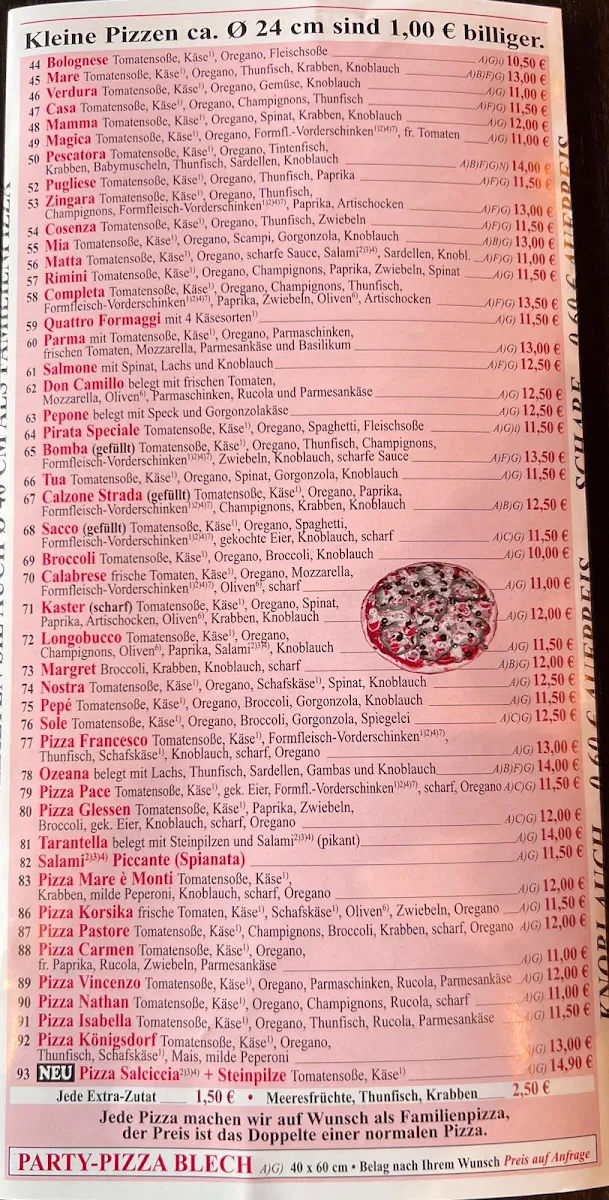 Kleine Pizzen ca. Ø 24 cm sind 1,00 € billiger.
44 Bolognese Tomatensoße, Käse¹⁾, Oregano, Fleischsoße A)G)i) 10,50 €
45 Mare Tomatensoße, Käse¹⁾, Oregano, Thunfisch, Krabben, Knoblauch A)B)F)G) 13,00 €
46 Verdura Tomatensoße, Käse¹⁾, Oregano, Gemüse, Knoblauch A)G) 11,00 €
47 Casa Tomatensoße, Käse¹⁾, Oregano, Champignons, Thunfisch A)F)G) 11,50 €
48 Mamma Tomatensoße, Käse¹⁾, Oregano, Spinat, Krabben, Knoblauch A)G) 12,00 €
49 Magica Tomatensoße, Käse¹⁾, Oregano, Formfl.-Vorderschinken¹⁾²⁾⁴⁾⁷⁾, fr. Tomaten A)G) 11,00 €
50 Pescatora Tomatensoße, Käse¹⁾, Oregano, Tintenfisch,
Krabben, Babymuscheln, Thunfisch, Sardellen, Knoblauch A)B)F)G)N) 14,00 €
52 Pugliese Tomatensoße, Käse¹⁾, Oregano, Thunfisch, Paprika A)F)G) 11,50 €
53 Zingara Tomatensoße, Käse¹⁾, Oregano, Thunfisch,
Champignons, Formfleisch-Vorderschinken¹⁾²⁾⁴⁾⁷⁾, Paprika, Artischocken A)F)G) 13,00 €
54 Cosenza Tomatensoße, Käse¹⁾, Oregano, Thunfisch, Zwiebeln A)F)G) 11,50 €
55 Mia Tomatensoße, Käse¹⁾, Oregano, Scampi, Gorgonzola, Knoblauch A)B)G) 13,00 €
56 Matta Tomatensoße, Käse¹⁾, Oregano, scharfe Sauce, Salami²⁾³⁾⁴⁾, Sardellen, Knobl. A)F)G) 11,00 €
57 Rimini Tomatensoße, Käse¹⁾, Oregano, Champignons, Paprika, Zwiebeln, Spinat A)G) 11,50 €
58 Completa Tomatensoße, Käse¹⁾, Oregano, Champignons, Thunfisch,
Formfleisch-Vorderschinken¹⁾²⁾⁴⁾⁷⁾, Paprika, Zwiebeln, Oliven⁶⁾, Artischocken A)F)G) 13,50 €
59 Quattro Formaggi mit 4 Käsesorten¹⁾ A)G) 11,50 €
60 Parma mit Tomatensoße, Käse¹⁾, Oregano, Parmaschinken,
frischen Tomaten, Mozzarella, Parmesankäse und Basilikum A)G) 13,00 €
61 Salmone mit Spinat, Lachs und Knoblauch A)F)G) 12,50 €
62 Don Camillo belegt mit frischen Tomaten,
Mozzarella, Oliven⁶⁾, Parmaschinken, Rucola und Parmesankäse A)G) 12,50 €
63 Pepone belegt mit Speck und Gorgonzolakäse A)G) 12,50 €
64 Pirata Speciale Tomatensoße, Käse¹⁾, Oregano, Spaghetti, Fleischsoße A)G)i) 11,50 €
65 Bomba (gefüllt) Tomatensoße, Käse¹⁾, Oregano, Thunfisch, Champignons,
Formfleisch-Vorderschinken¹⁾²⁾⁴⁾⁷⁾, Zwiebeln, Knoblauch, scharfe Sauce A)F)G) 13,50 €
66 Tua Tomatensoße, Käse¹⁾, Oregano, Spinat, Gorgonzola, Knoblauch A)G) 11,50 €
67 Calzone Strada (gefüllt) Tomatensoße, Käse¹⁾, Oregano, Paprika,
Formfleisch-Vorderschinken¹⁾²⁾⁴⁾⁷⁾, Champignons, Krabben, Knoblauch A)B)G) 12,50 €
68 Sacco (gefüllt) Tomatensoße, Käse¹⁾, Oregano, Spaghetti,
Formfleisch-Vorderschinken¹⁾²⁾⁴⁾⁷⁾, gekochte Eier, Knoblauch, scharf A)C)G) 11,50 €
69 Broccoli Tomatensoße, Käse¹⁾, Oregano, Broccoli, Knoblauch A)G) 10,00 €
70 Calabrese frische Tomaten, Käse¹⁾, Oregano, Mozzarella,
Formfleisch-Vorderschinken¹⁾²⁾⁴⁾⁷⁾, Oliven⁶⁾, scharf A)G) 11,00 €
71 Kaster (scharf) Tomatensoße, Käse¹⁾, Oregano, Spinat,
Paprika, Artischocken, Oliven⁶⁾, Krabben, Knoblauch A)G) 12,00 €
72 Longobucco Tomatensoße, Käse¹⁾, Oregano,
Champignons, Oliven⁶⁾, Paprika, Salami²⁾³⁾⁴⁾, Knoblauch A)G) 11,50 €
73 Margret Broccoli, Krabben, Knoblauch, scharf A)B)G) 12,00 €
74 Nostra Tomatensoße, Käse¹⁾, Oregano, Schafskäse¹⁾, Spinat, Knoblauch A)G) 12,50 €
75 Pepé Tomatensoße, Käse¹⁾, Oregano, Broccoli, Gorgonzola, Knoblauch A)G) 11,50 €
76 Sole Tomatensoße, Käse¹⁾, Oregano, Broccoli, Gorgonzola, Spiegelei A)C)G) 12,50 €
77 Pizza Francesco Tomatensoße, Käse¹⁾, Formfleisch-Vorderschinken¹⁾²⁾⁴⁾⁷⁾,
Thunfisch, Schafskäse¹⁾, Knoblauch, scharf, Oregano A)G) 13,00 €
78 Ozeana belegt mit Lachs, Thunfisch, Sardellen, Gambas und Knoblauch A)B)F)G) 14,00 €
79 Pizza Pace Tomatensoße, Käse¹⁾, gek. Eier, Formfl.-Vorderschinken¹⁾²⁾⁴⁾⁷⁾, scharf, Oregano A)C)G) 11,50 €
80 Pizza Glessen Tomatensoße, Käse¹⁾, Paprika, Zwiebeln,
Broccoli, gek. Eier, Knoblauch, scharf, Oregano A)C)G) 12,00 €
81 Tarantella belegt mit Steinpilzen und Salami²⁾³⁾⁴⁾ (pikant) A)G) 14,00 €
82 Salami²⁾³⁾⁴⁾ Piccante (Spianata) A)G) 11,50 €
83 Pizza Mare è Monti Tomatensoße, Käse¹⁾,
Krabben, milde Peperoni, Knoblauch, scharf, Oregano A)G) 12,00 €
86 Pizza Korsika frische Tomaten, Käse¹⁾, Schafskäse¹⁾, Oliven⁶⁾, Zwiebeln, Oregano A)G) 11,50 €
87 Pizza Pastore Tomatensoße, Käse¹⁾, Champignons, Broccoli, Krabben, scharf, Oregano A)G) 12,00 €
88 Pizza Carmen Tomatensoße, Käse¹⁾, Oregano,
fr. Paprika, Rucola, Zwiebeln, Parmesankäse A)G) 11,00 €
89 Pizza Vincenzo Tomatensoße, Käse¹⁾, Oregano, Parmaschinken, Rucola, Parmesankäse A)G) 12,00 €
90 Pizza Nathan Tomatensoße, Käse¹⁾, Oregano, Champignons, Rucola, scharf A)G) 11,00 €
91 Pizza Isabella Tomatensoße, Käse¹⁾, Oregano, Thunfisch, Rucola, Parmesankäse A)G) 11,50 €
92 Pizza Königsdorf Tomatensoße, Käse¹⁾, Oregano,
Thunfisch, Schafskäse¹⁾, Mais, milde Peperoni A)G) 13,00 €
93 NEU Pizza Salciccia²⁾³⁾⁴⁾ + Steinpilze Tomatensoße, Käse¹⁾ A)G) 14,90 €
Jede Extra-Zutat 1,50 € • Meeresfrüchte, Thunfisch, Krabben 2,50 €
Jede Pizza machen wir auf Wunsch als Familienpizza,
der Preis ist das Doppelte einer normalen Pizza.
PARTY-PIZZA BLECH A)G) 40 x 60 cm • Belag nach Ihrem Wunsch Preis auf Anfrage
KNOBLAUCH 0,60 € AUFPREIS SCHARF 0,60 € AUFPREIS
SIE AUCH Ø 40 CM ALS FAMILIENPIZZA